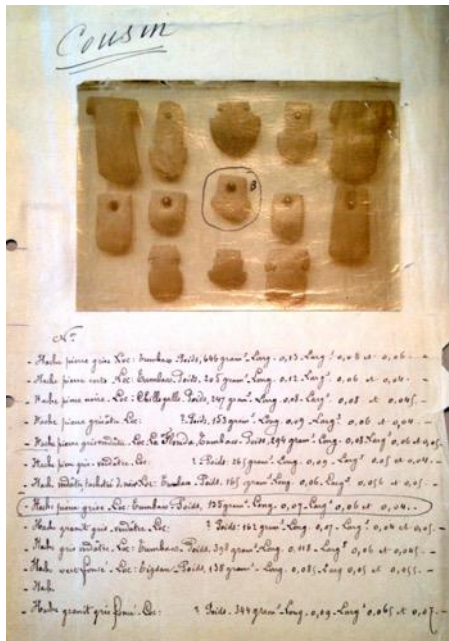 Cousin
B
No
- Hache pierre grise Loc: Tumbaco Poids, 646 gram. Long. 0,13 Larg. 0,08 et 0,06. -
- Hache pierre verte Loc: Tumbaco Poids, 205 gram. Long. 0,12 Larg. 0,06 et 0,04. -
- Hache pierre noire. Loc: Poids, 247 gram. Long. 0,08 Larg. 0,08 et 0,045. -
- Hache pierre Loc: ? Poids, 153 gram. Long. 0,09 Larg. 0,06 et 0,04. -
- Hache pierre gris verdâtre. Loc. La Florida, Tumbaco. Poids, 294 gram. Long. 0,08 Larg. 0,06 et 0,05. -
- Hache pierre gris verdâtre. Loc: ? Poids: 265 gram. Long. 0,09. Larg. 0,05 et 0,04. -
- Hache verdâtre, tacheté de noir Loc: Tumbaco Poids, 165 gram. Long. 0,06. Larg. 0,056 et 0,05. -
- Hache pierre grise. Loc: Tumbaco Poids, 135 gram. Long. 0,07. Larg. 0,06 et 0,04. -
- Hache granit gris verdâtre Loc: ? Poids: 162 gram. Long. 0,07. Larg. 0,04 et 0,05. -
- Hache gris verdâtre. Loc: Tumbaco. Poids, 398 gram. Long. 0,118. Larg. 0,06 et 0,045. -
- Hache vert foncé. Loc: Poids, 138 gram. Long. 0,085 Larg. 0,05 et 0,055. -
- Hach.
- Hache granit gris foncé. Loc: ? Poids, 344 gram. Long. 0,09 Larg. 0,065 et 0,07. -